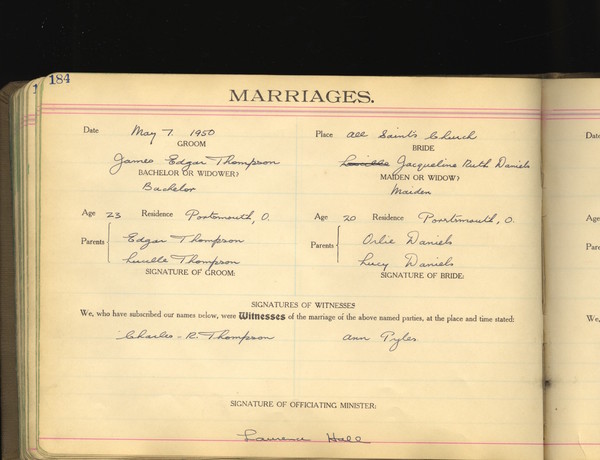 184
MARRIAGES.
Date May 7 1950 Place All Saints Church
GROOM BRIDE
James Edgar Thompson Jacqueline Ruth Daniels
BACHELOR OR WIDOWER? MAIDEN OR WIDOW?
Bachelor Maiden
Age 23 Residence Portsmouth, O. Age 20 Residence Portsmouth, O.
Parents Edgar Thompson Parents Orlie Daniels
Lucille Thompson Lucy Daniels
SIGNATURE OF GROOM: SIGNATURE OF BRIDE:
SIGNATURES OF WITNESSES
We, who have subscribed our names below, were Witnesses of the marriage of the above named parties, at the place and time stated:
Charles R. Thompson Ann Pyles
SIGNATURE OF OFFICIATING MINISTER:
Laurence Hall
Date
Age
Pare
We,